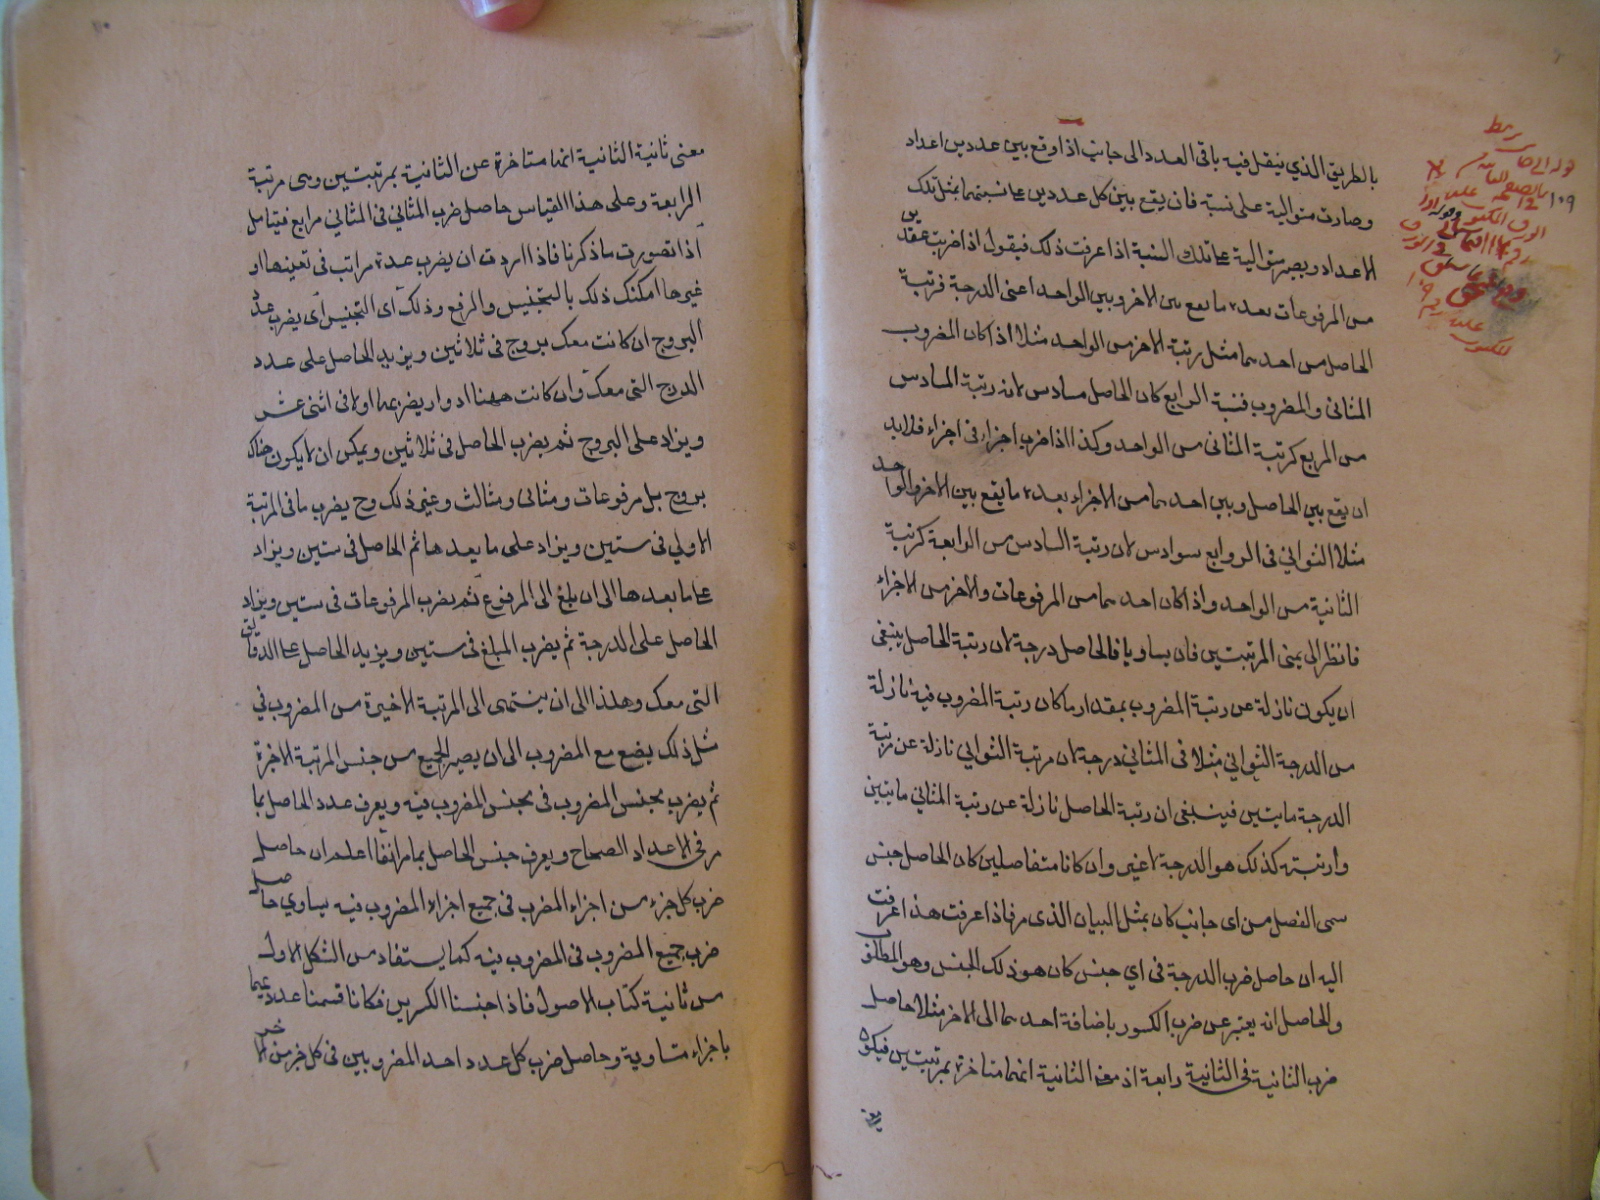 بالطريق الذي ينقل فيه باقى العدد الى جانب اذا وقع بين عددين اعداد
وصارت متوالية على نسبة فان يقع بين كل عددين على نسبتهما بمثل تلك
الاعداد ويصير متوالية على تلك النسبة اذا عرفت ذلك فيقول اذا ضربت عقدين
من المرفوعات بعدد ما يقع بين الاخر وبين الواحد اعنى الدرجة فرتبة
الحاصل من احدهما مثل رتبة الاخر من الواحد مثلا اذا كان المضروب
المثانى والمضروب فيه الرابع كان الحاصل مسادس لان رتبة المسادس
من المربع كرتبة المثانى من الواحد وكذا اذا ضرب اجزاء فى اجزاء فلابد
ان يقع بين الحاصل وبين احدهما من الاجزاء بعدد ما يقع بين الاخر والواحد
مثلا الثوانى فى الروابع سوادس لان رتبة السادس من الرابعة كرتبة
الثانية من الواحد واذا كان احدهما من المرفوعات والاخر من الاجزاء
فانظر الى يمنى المرتبتين فان يساويا فالحاصل درجة لان رتبة الحاصل ينبغى
ان يكون نازلة عن رتبة المضروب بمقدار ما كان رتبة المضروب فيه نازلة
من الدرجة الثوانى مثلا فى المثانى درجة لان مرتبة الثوانى نازلة عن مرتبة
الدرجة مابتين فينبغى ان رتبة الحاصل نازلة عن رتبة المثانى مابتين
وارتبته كذلك هو الدرجة لا غير وان كانا متفاصلين كان الحاصل جنس
سمى الفضل من اى جانب كان بمثل البيان الذى مر فاذا عرفت هذا عرفت
اليه ان حاصل ضرب الدرجة فى اي جنس كان هو ذلك الجنس وهو المطلوب
والحاصل انه يعتبر عن ضرب الكسور باضافة احدهما الى الاخر مثلا حاصل
ضرب الثانية فى الثانية رابعة اذ معنى الثانية انهما متاخرة بمرتبتين فيكون
معنى ثانية الثانية انها متاخرة عن الثانية بمرتبتين وهى مرتبة
الرابعة وعلى هذا القياس حاصل ضرب المثانى فى المثانى مرابع فيتامل
اذا تصورت ما ذكرنا فاذا اردت ان يضرب عدة مراتب فى تعينها او
غيرها امكنك ذلك بالتجنيس والرفع وذلك اى التجنيس اى يضرب عدد
البروج ان كانت معك بروج فى ثلاثين ويزيد الحاصل على عدد
الدرج التى معك وان كانت ههنا ادوار يضربها اولا فى اثنى عشر
ويزاد على البروج ثم يضرب الحاصل فى ثلاثين ويمكن ان لا يكون هناك
بروج بل مرفوعات ومثانى ومثالث وغير ذلك وح يضرب ما فى المرتبة
الاولى فى ستين ويزاد على ما بعدها ثم الحاصل فى ستين ويزاد
على ما بعدها الى ان بلغ الى المرفوع ثم يضرب المرفوعات فى ستين ويزاد
الحاصل على الدرجة ثم يضرب المبلغ فى ستين ويزيد الحاصل على الدقائق
التى معك وهلذا الى ان ينتهى الى المرتبة الاخيرة من المضروب فى
مثل ذلك يضع مع المضروب الى ان يصير الجميع من جنس المرتبة الاخرة
ثم يضرب مجنس المضروب فى مجنس المضروب فيه ويعرف عدد الحاصل بما
مر فى الاعداد الصحاح ويعرف جنس الحاصل بما مر انفا اعلم ان حاصل
ضرب كل جزء من اجزاء المضرب فى جميع اجزاء المضروب فيه يساوي حاصل
ضرب جميع المضروب فى المضروب فيه كما يستفاد من الشكل الاول
من ثانية كتاب الاصول فاذا جنسنا الكسرين فكانا قسمنا عددعيهما
باجزاء متساوية وحاصل ضرب كل عدد احد المضروبين فى كل جزء من الاخر